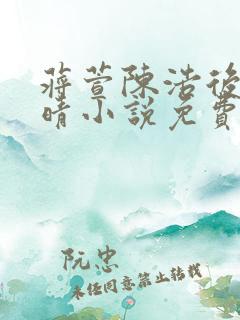 蒋萱陈浩後
晴小説免費
阮忠
未经同意禁止转载